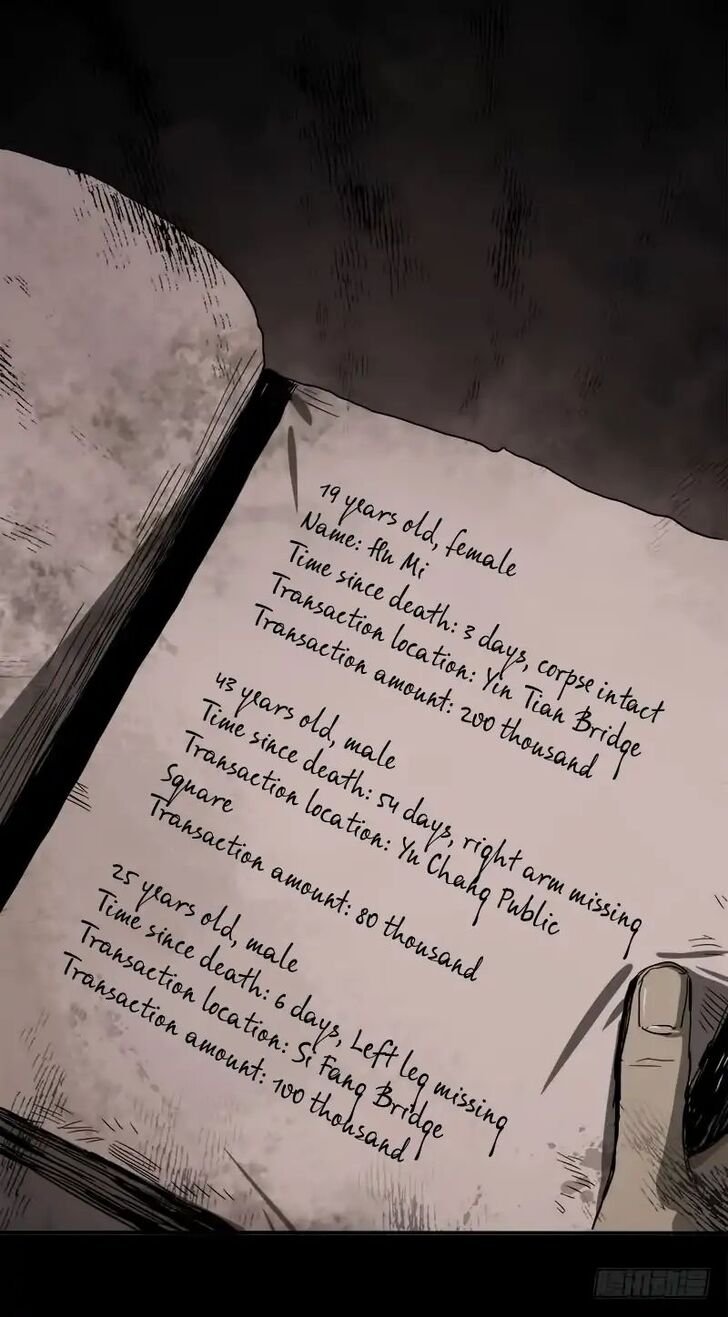 19 years old, female
Name: Hu Mi
Time since death: 3 days, corpse intact
Transaction location: Yin Tian Bridge
Transaction amount: 200 thousand
43 years old, male
Time since death: 54 days, right arm missing
Transaction location: Yu Chang Public
Square
Transaction amount: 80 thousand
25 years old, male
Time since death: 6 days, Left leg missing
Transaction location: Si Fang Bridge
Transaction amount: 100 thousand